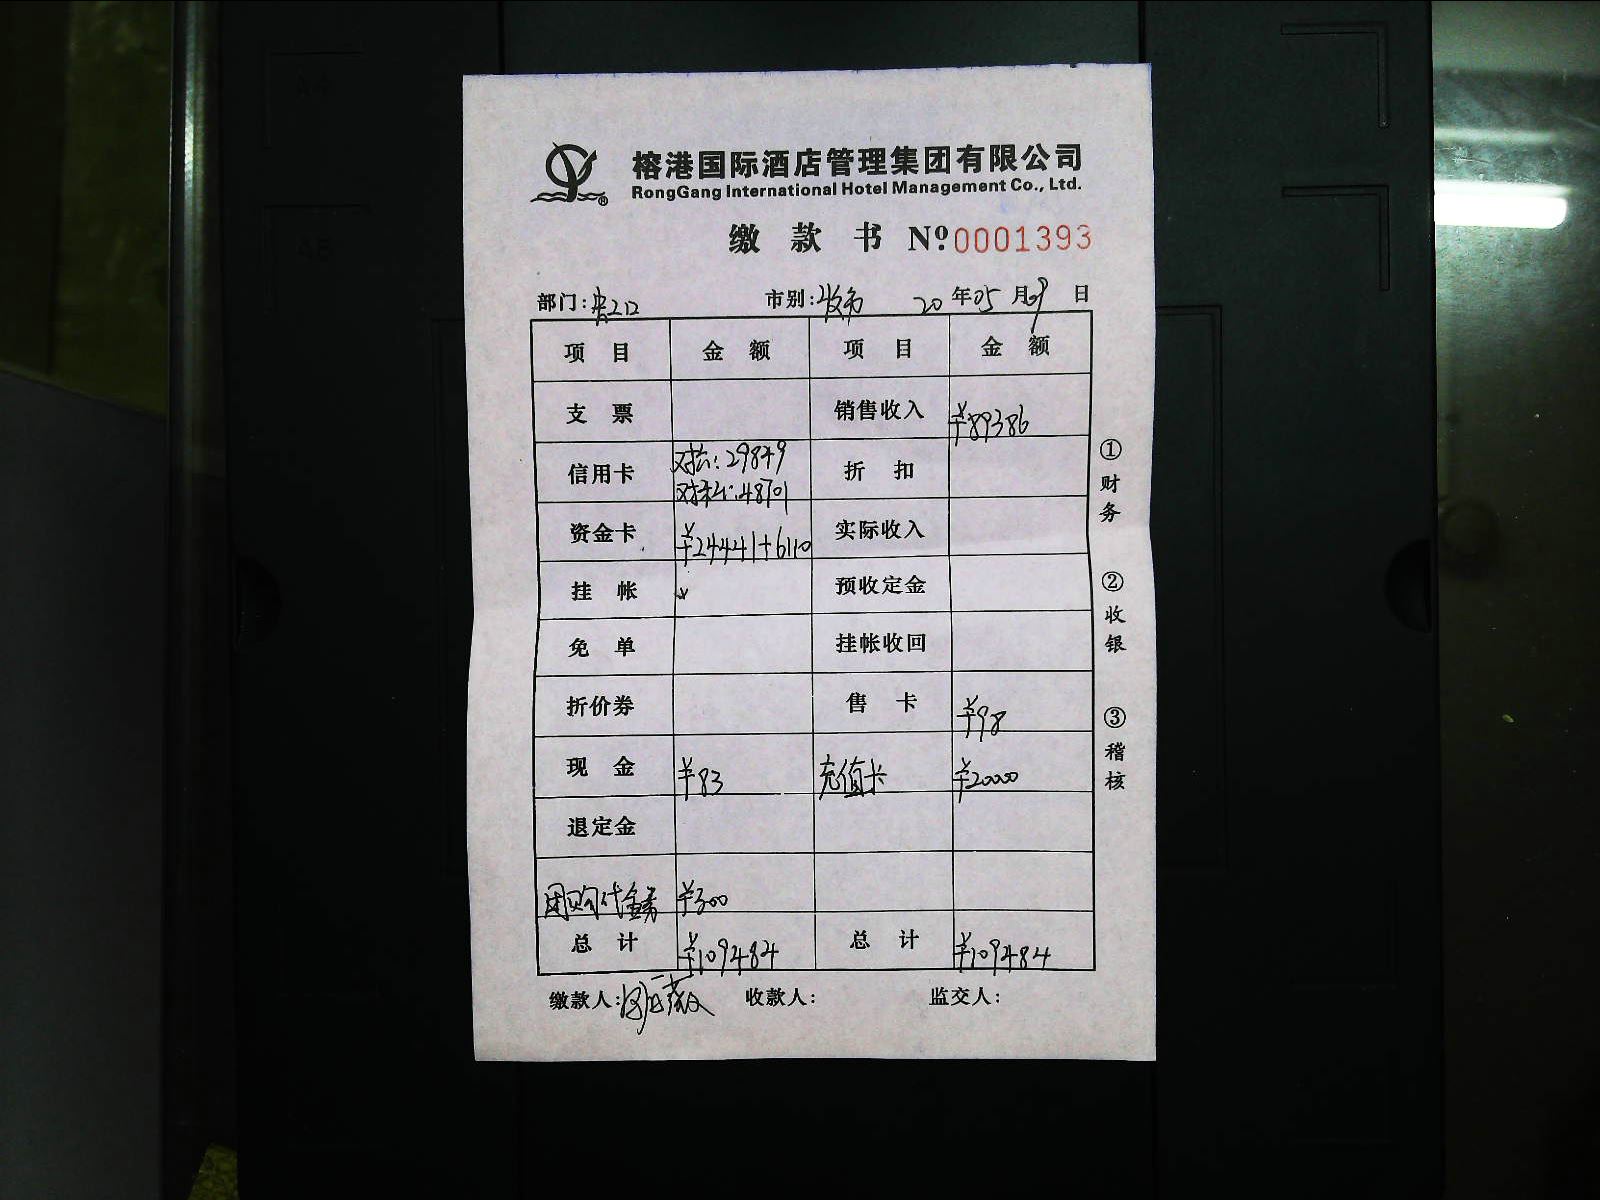 榕港国际酒店管理集团有限公司
RongGang International Hotel Management Co., Ltd.
缴 款 书 Nº 0001393
部门: 市别: 20 年 05 月 9 日
项 目 金 额 项 目 金 额
支 票 销售收入 ¥89386
信用卡 对公: 29849 折 扣
对私: 48701
资金卡 ¥24441+6110 实际收入
挂 帐 预收定金
免 单 挂帐收回
折价券 售 卡 ¥98
现 金 ¥83 充值卡 ¥20000
退定金
团购代金券 ¥300
总 计 ¥109484 总 计 ¥109484
缴款人: 收款人: 监交人:
①财务
②收银
③稽核